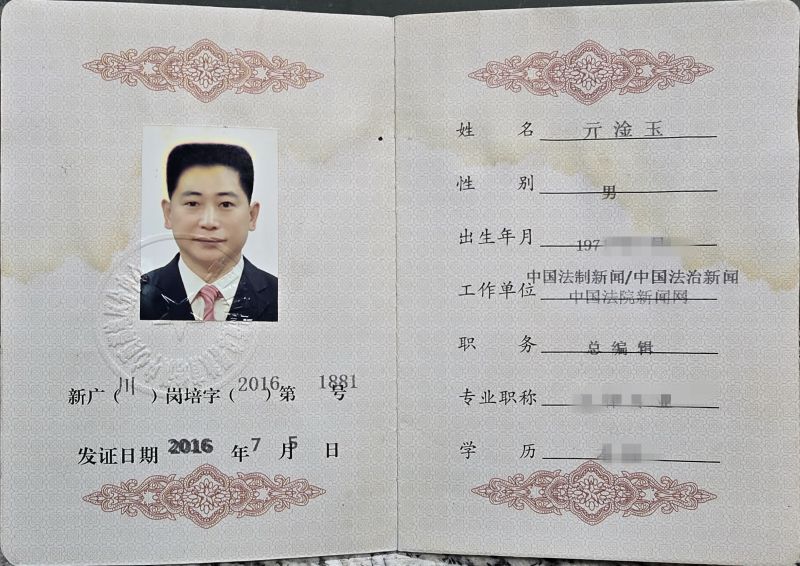 新广（川）岗培字（2016）第1881号
发证日期 2016 年 7 月 5 日
姓 名 亓淦玉
性 别 男
出生年月 197
中国法制新闻/中国法治新闻
工作单位 中国法院新闻网
职 务 总编辑
专业职称
学 历